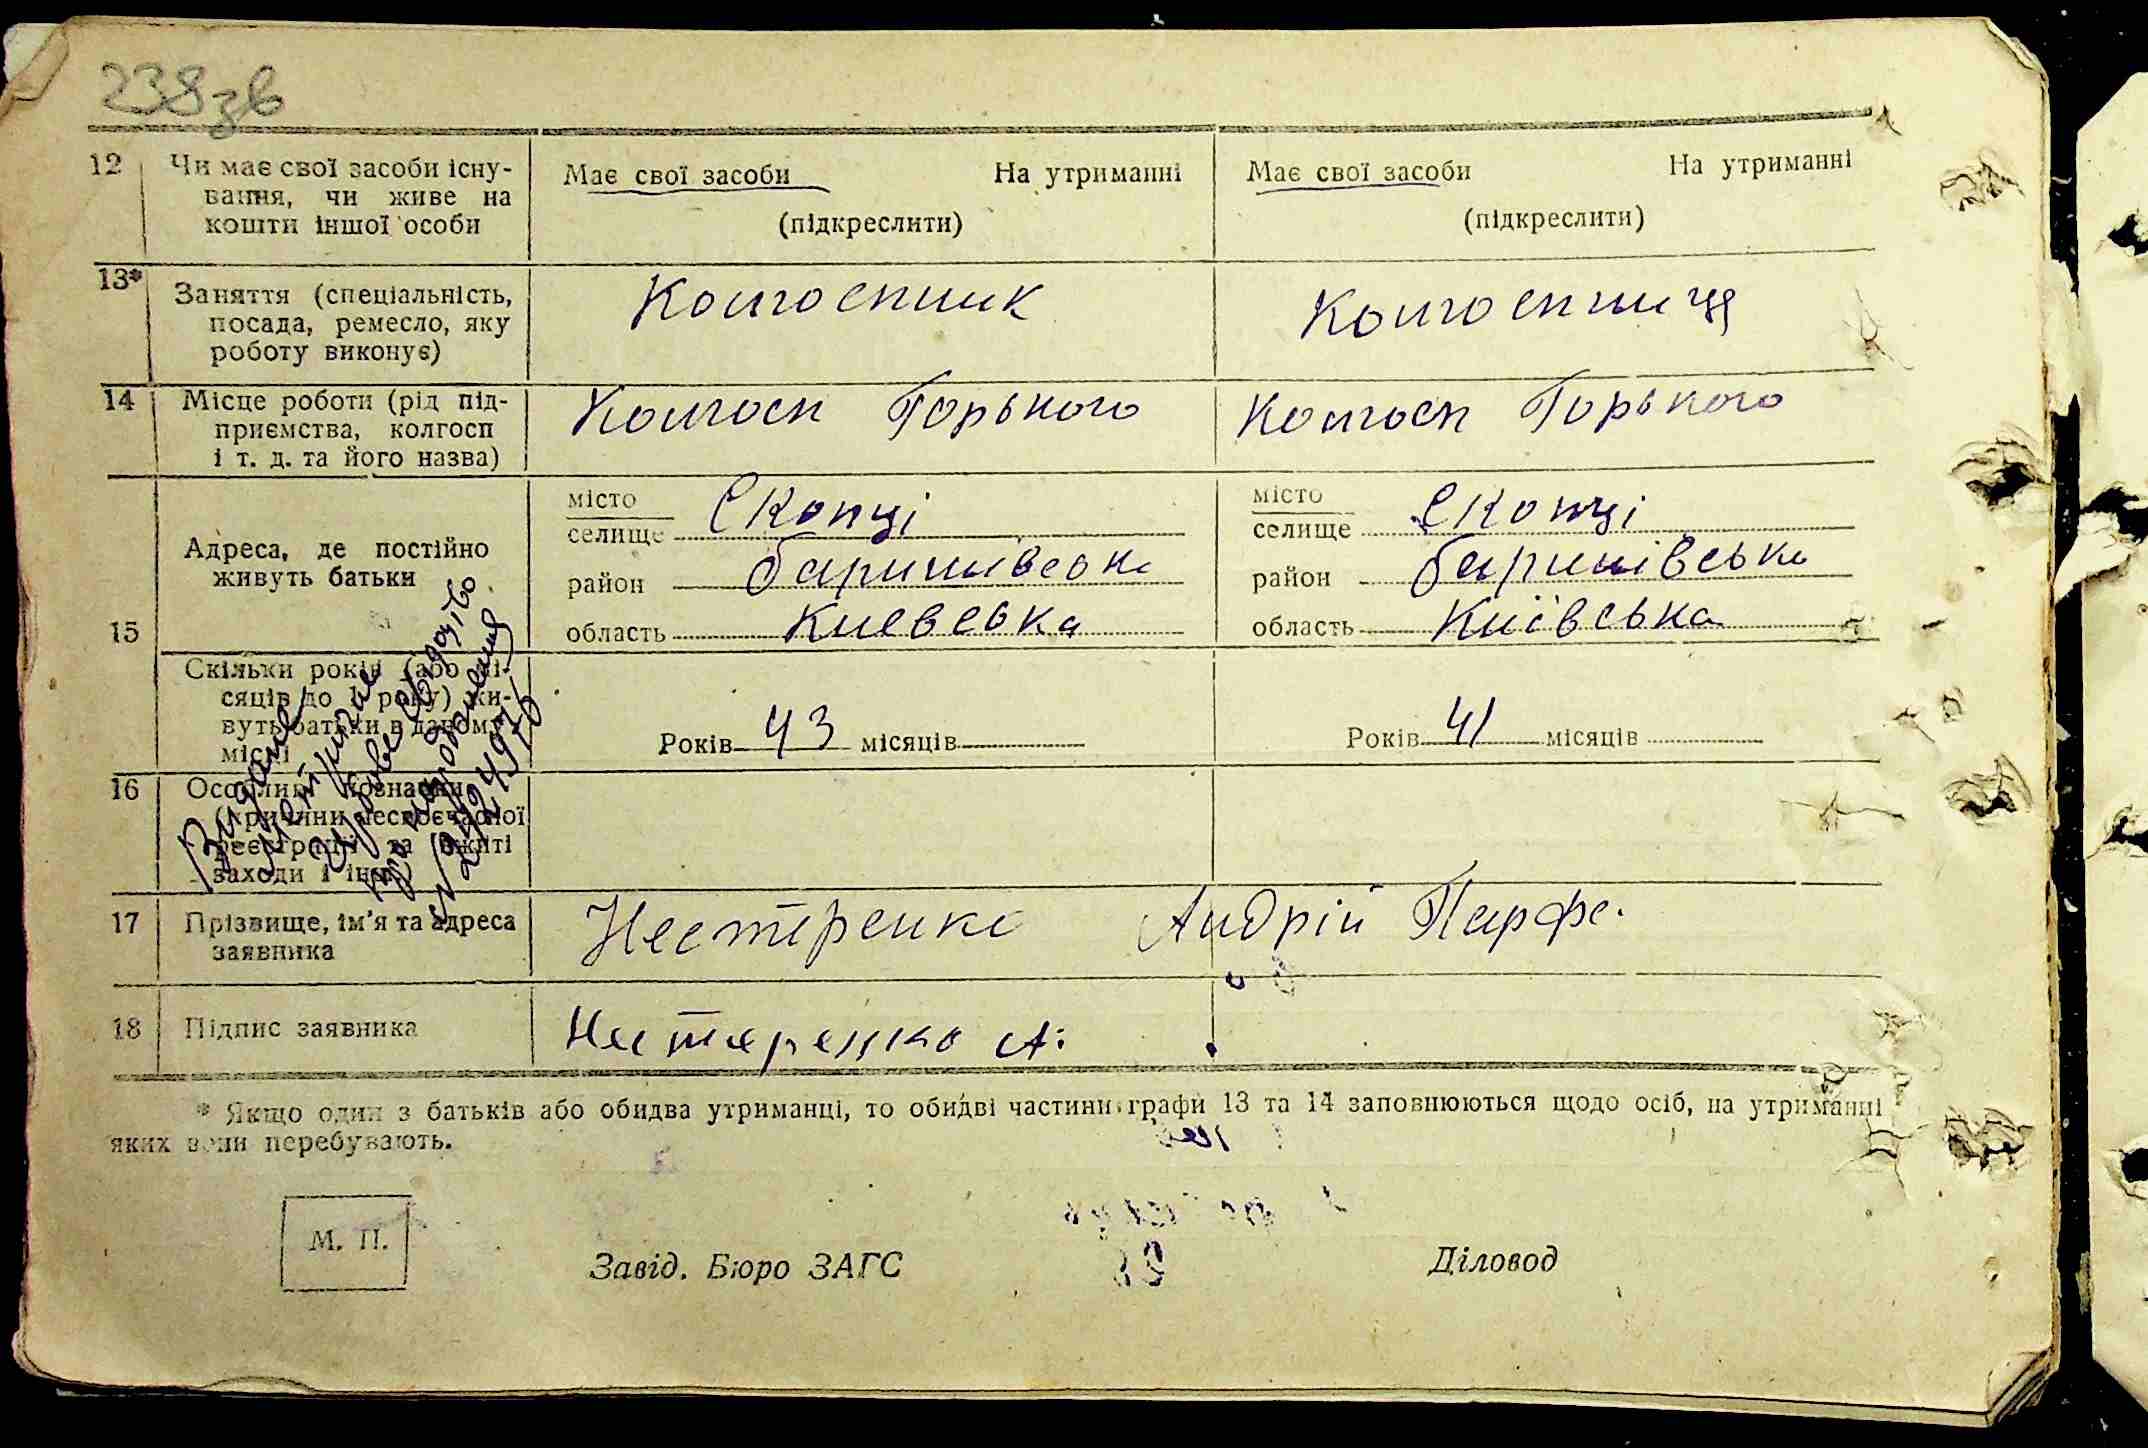 238зв
12 Чи має свої засоби існу-
вання, чи живе на
кошти іншої особи
Має свої засоби На утриманні
(підкреслити)
Має свої засоби На утриманні
(підкреслити)
13* Заняття (спеціальність,
посада, ремесло, яку
роботу виконує)
Колгоспник
Колгоспниця
14 Місце роботи (рід під-
приємства, колгосп
і т. д. та його назва)
Колгосп Горького
Колгосп Горького
15 Адреса, де постійно
живуть батьки
місто
селище Скопці
район баришівська
область Киевська
місто
селище Скопці
район баришівська
область Київська
Скільки років (або мі-
сяців до 1 року) жи-
вуть батьки в даному
місці
Років 43 місяців
Років 41 місяців
16 Особливі позначки
(причини несвоєчасної
реєстрації та вжиті
заходи і інш.)
Видане
повторне свидоцтво
про народження
17 Прізвище, ім'я та адреса
заявника
Нестеренко Андрій Парфе.
18 Підпис заявника
Нестеренко А.
* Якщо один з батьків або обидва утриманці, то обидві частини графи 13 та 14 заповнюються щодо осіб, на утриманні
яких вони перебувають.
М. П.
Завід. Бюро ЗАГС
Діловод